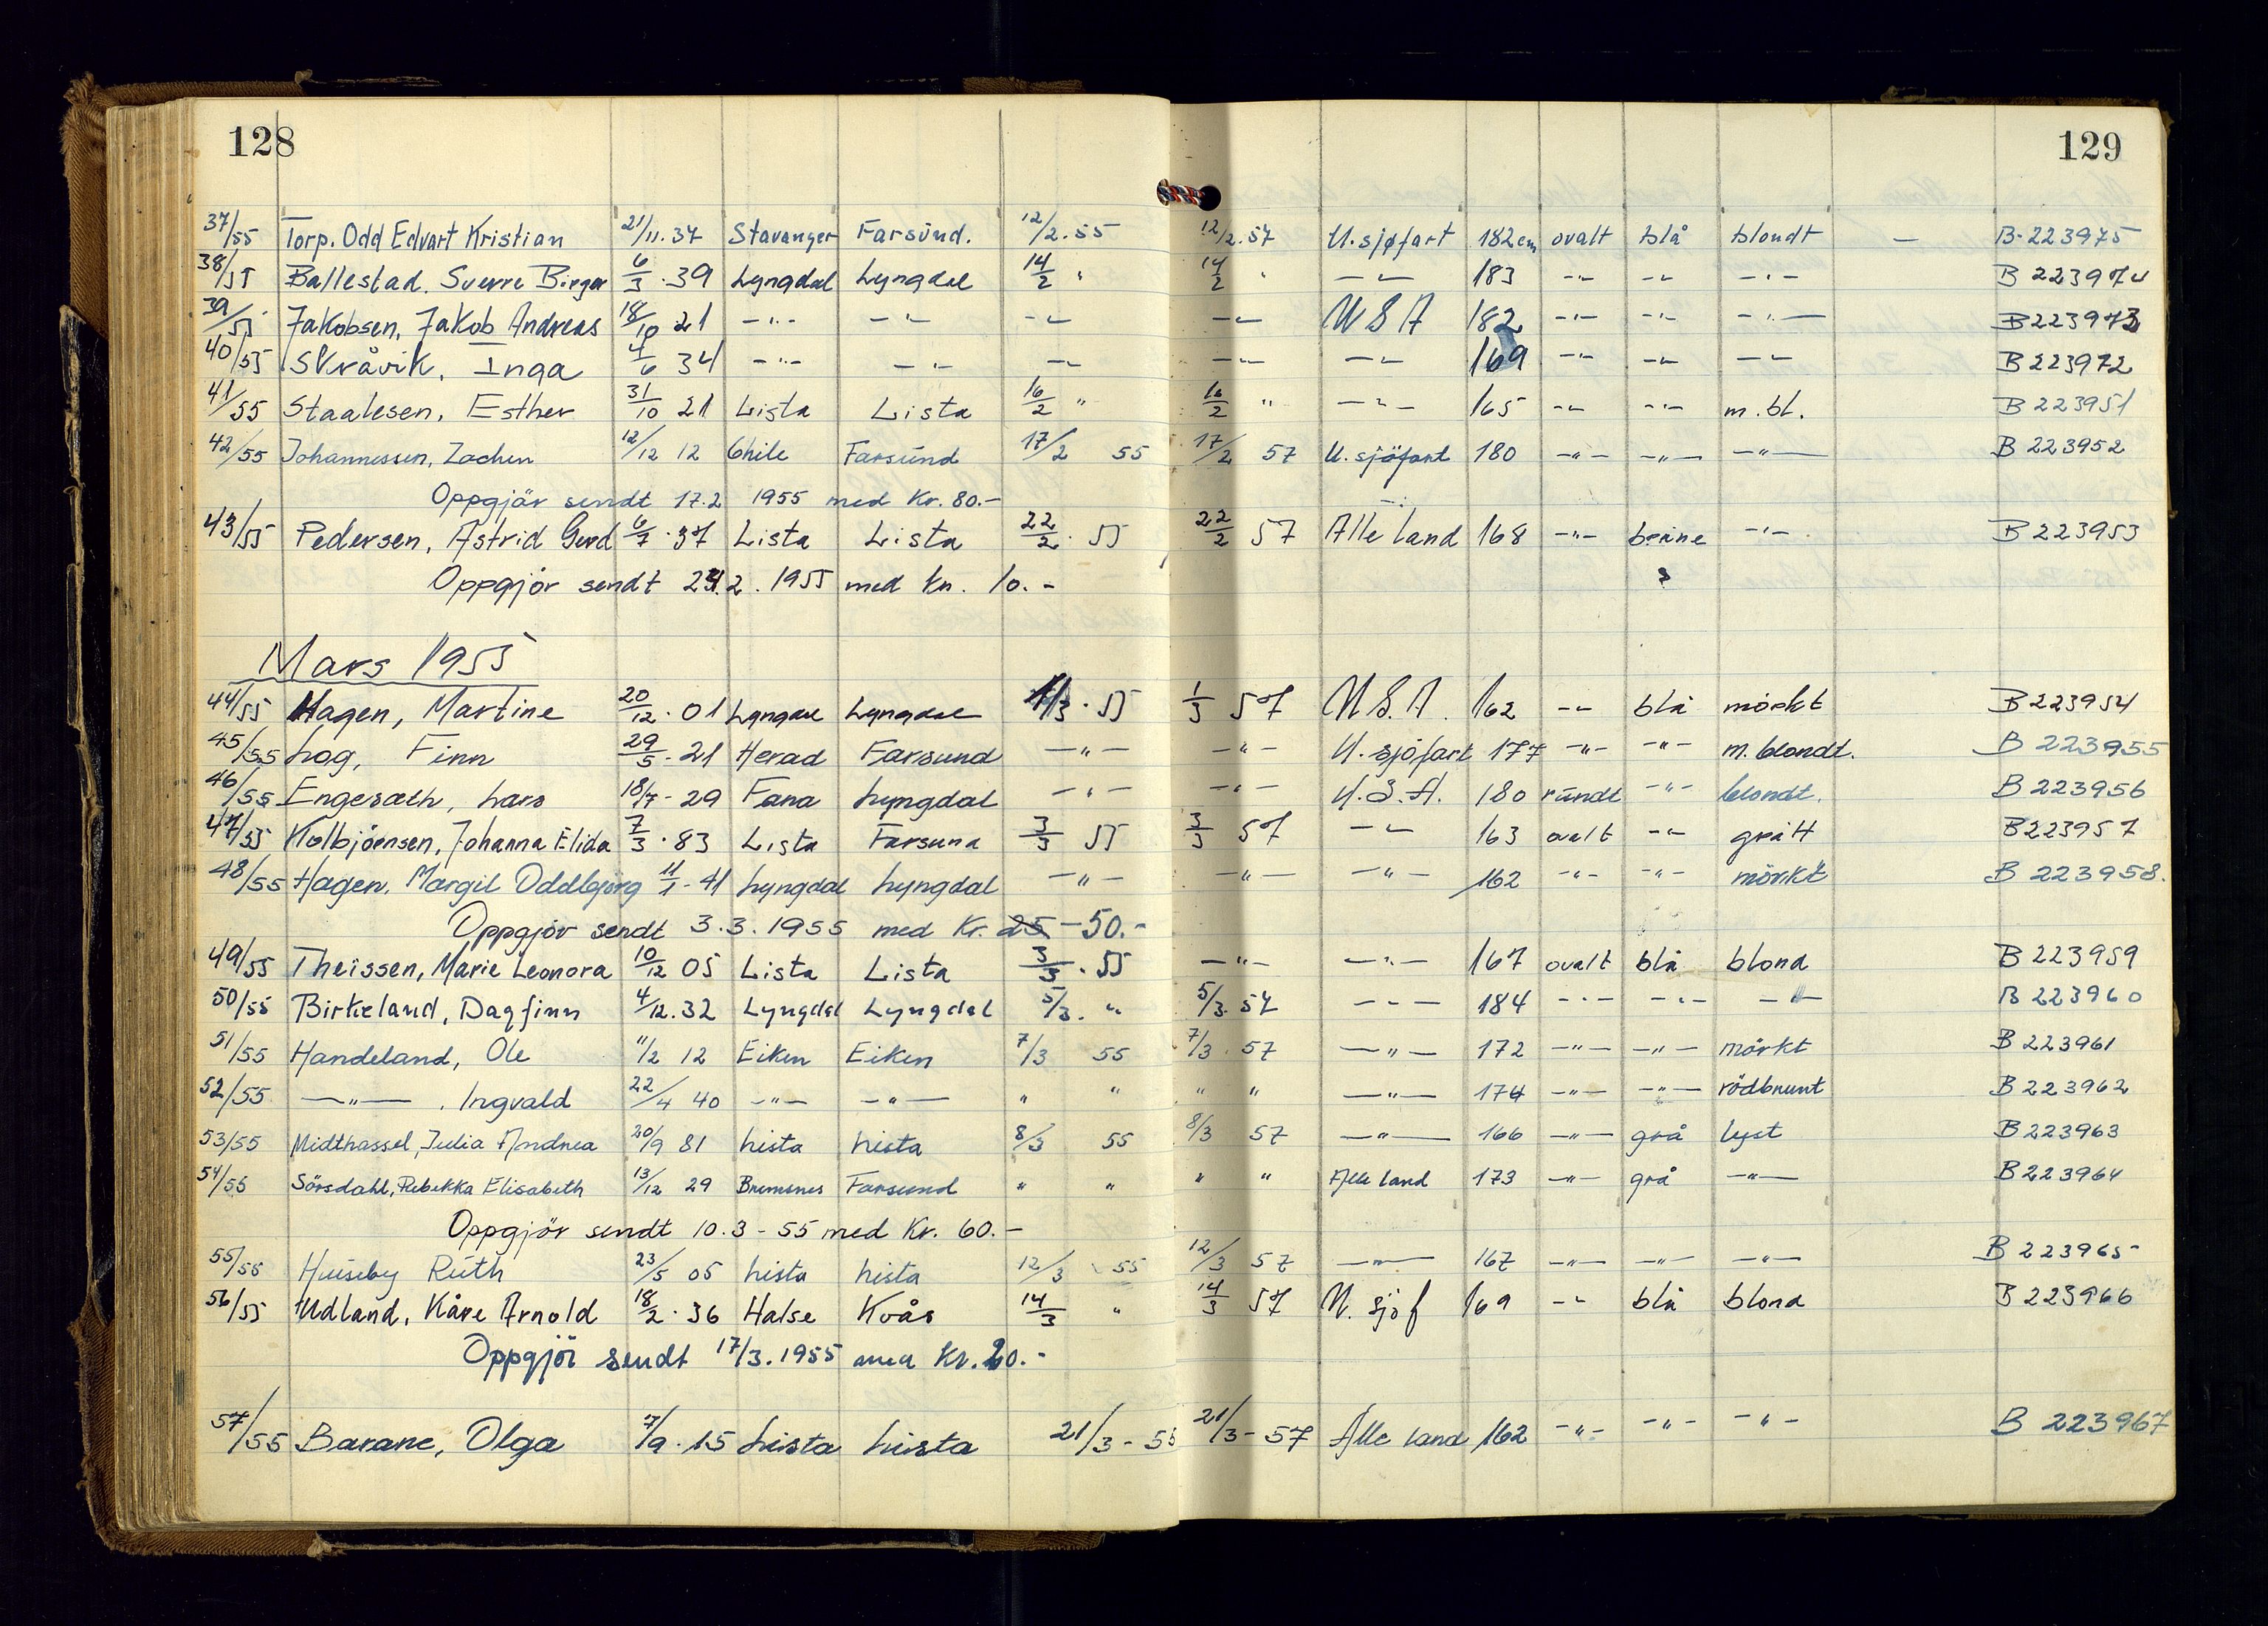 128
129
37/55 Torp. Odd Edvart Kristian 21/11.37 Stavanger Farsund. 12/2.55 12/2.57 U.sjøfart 182cm ovalt blå blondt — B.223975
38/55 Ballestad. Sverre Birger 6/3.39 Lyngdal Lyngdal 14/2 " 14/2 " —"— 183 -"- -"- -"- B 223974
39/55 Jakobsen, Jakob Andreas 18/10 21 -"- -"- -"- -"- USA 182 -"- -"- -"- B 223973
40/55 Skråvik, Inga 4/6 34 -"- -"- -"- -"- -"- 169 -"- -"- -"- B 223972
41/55 Staalesen, Esther 31/10 21 Lista Lista 16/2 " 16/2 " -"- 165 -"- -"- m.bl. B 223951
42/55 Johannessen, Zachen 12/12 12 Chile Farsund 17/2 55 17/2 57 U.sjöfart 180 -"- -"- -"- B 223952
Oppgjör sendt 17.2 1955 med Kr. 80.-
43/55 Pedersen, Astrid Gerd 6/7.37 Lista Lista 22/2.55 22/2 57 Alle land 168 -"- brune -"- B 223953
Oppgjör sendt 24.2.1955 med kr. 10.-
Mars 1955
44/55 Hagen, Martine 20/12.01 Lyngdal Lyngdal 1/3.55 1/3 57 U.S.A. 162 -"- blå mörkt B 223954
45/55 Log, Finn 29/5.21 Herad Farsund -"- -"- U.sjöfart 177 -"- -"- m.blondt. B 223955
46/55 Engesæth, Lars 18/7-29 Fana Lyngdal -"- -"- U.S.A. 180 rundt -"- blondt. B 223956
47/55 Kolbjörnsen, Johanna Elida 7/3.83 Lista Farsund 3/3 55 3/3 57 -"- 163 ovalt -"- grått B 223957
48/55 Hagen, Margit Oddbjörg 11/1-41 Lyngdal Lyngdal -"- -"- -"- 162 -"- -"- mörkt B 223958.
Oppgjör sendt 3.3.1955 med Kr. 25 - 50.-
49/55 Theissen, Marie Leonora 10/12 05 Lista Lista 3/3.55 -"- -"- 167 ovalt blå blond B 223959
50/55 Birkeland, Dagfinn 4/12.32 Lyngdal Lyngdal 5/3. " 5/3.57 -"- 184 -"- -"- -"- B 223960
51/55 Handeland, Ole 11/2 12 Eiken Eiken 7/3 55 7/3 57 -"- 172 -"- -"- mörkt B 223961
52/55 -"- . Ingvald 22/4 40 -"- -"- " " " " -"- 174 -"- -"- rödbrunt B 223962
53/55 Midthassel, Julia Andrea 20/9 81 Lista Lista 8/3 55 8/3 57 -"- 166 -"- grå lyst B 223963
54/55 Sörsdahl, Rebekka Elisabeth 13/12 29 Bremsnes Farsund " " " " Alle land 173 -"- grå -"- B 223964
Oppgjör sendt 10.3-55 med Kr. 60.-
55/55 Huseby Ruth 23/5 05 Lista Lista 12/3 55 12/3 57 -"- 167 -"- -"- -"- B 223965
56/55 Udland, Kåre Arnold 18/2.36 Halse Kvås 14/3 " 14/3 57 U. sjöf 169 -"- blå blond B 223966
Oppgjör sendt 17/3.1955 med Kr. 20.-
57/55 Barane, Olga 7/9.15 Lista Lista 21/3-55 21/3-57 Alle land 162 -"- -"- -"- B 223967